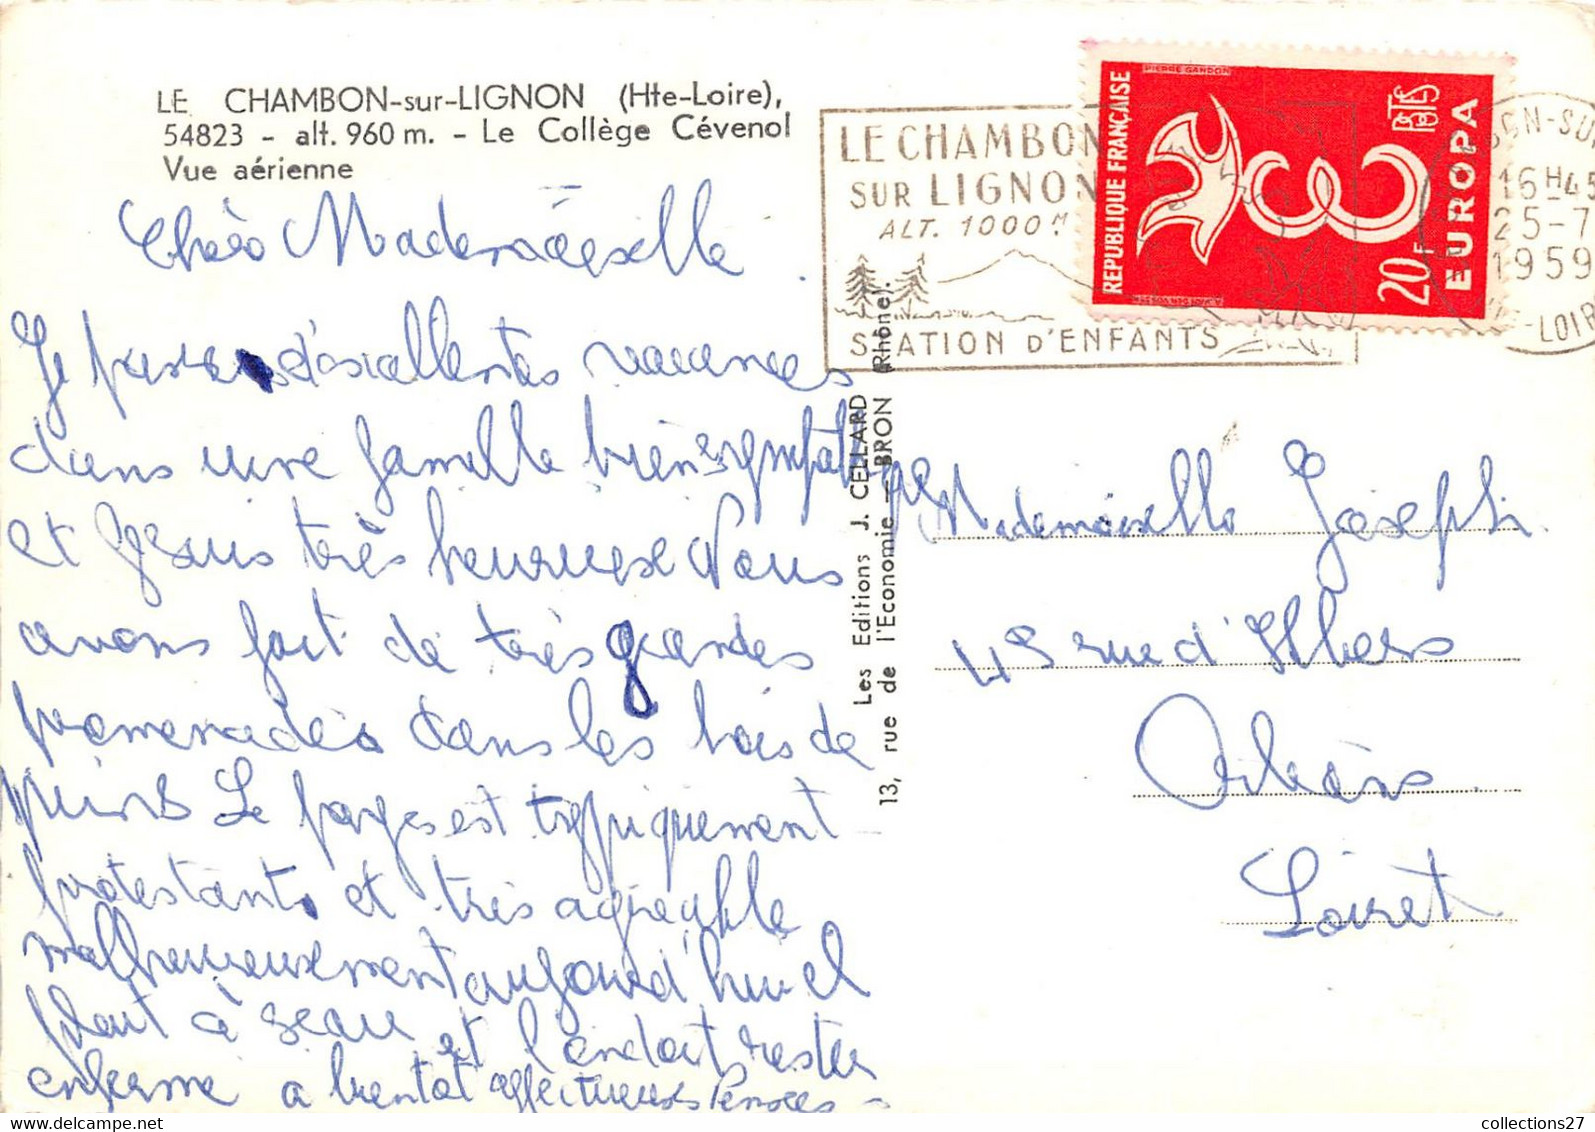 LE CHAMBON-sur-LIGNON (Hte-Loire),
54823 - alt. 960 m. - Le Collège Cévenol
Vue aérienne
Chère Mademoiselle
Je passe d'excellentes vacances
dans une famille bien sympathique
et je suis très heureuse Nous
avons fait de très grandes
promenades dans les bois de
pins Le pays est typiquement
protestants et très agréable
malheureusement aujourd'hui il
pleut à seau et l'on doit rester
enfermé a bientôt affectueuses Pensées -
Les Editions J. CELLARD
13, rue de l'Economie - BRON (Rhône).
LE CHAMBON
SUR LIGNON
ALT. 1000 M
STATION D'ENFANTS
REPUBLIQUE FRANÇAISE
PIERRE GANDON
EUROPA
20F
16 H 45
25-7
1959
Mademoiselle Joseph
rue d'Illiers
Orléans
Loiret
collections27